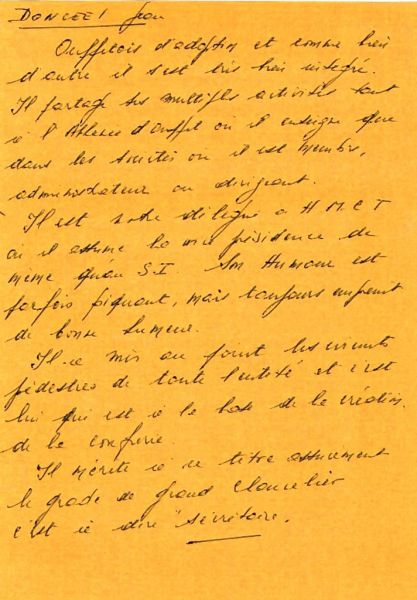 DONCEEL Jean
Ouffetois d'adoption et comme bien
d'autre il s'est très bien intégré.
Il partage ses multiples activités tant
à l'Athénée d'Ouffet où il enseigne que
dans les sociétés où il est membre,
administrateur ou dirigeant.
Il est notre délégué à H M C T
où il assume la vice présidence de
même qu'au S.I. Son Humour est
parfois piquant, mais toujours empreint
de bonne humeur.
Il a mis au point les circuits
pédestres de toute l'entité et c'est
lui qui est à la base de la création
de la confrérie.
Il mérite à ce titre assurément
le grade de grand Chancelier
c'est à dire "Secrétaire.